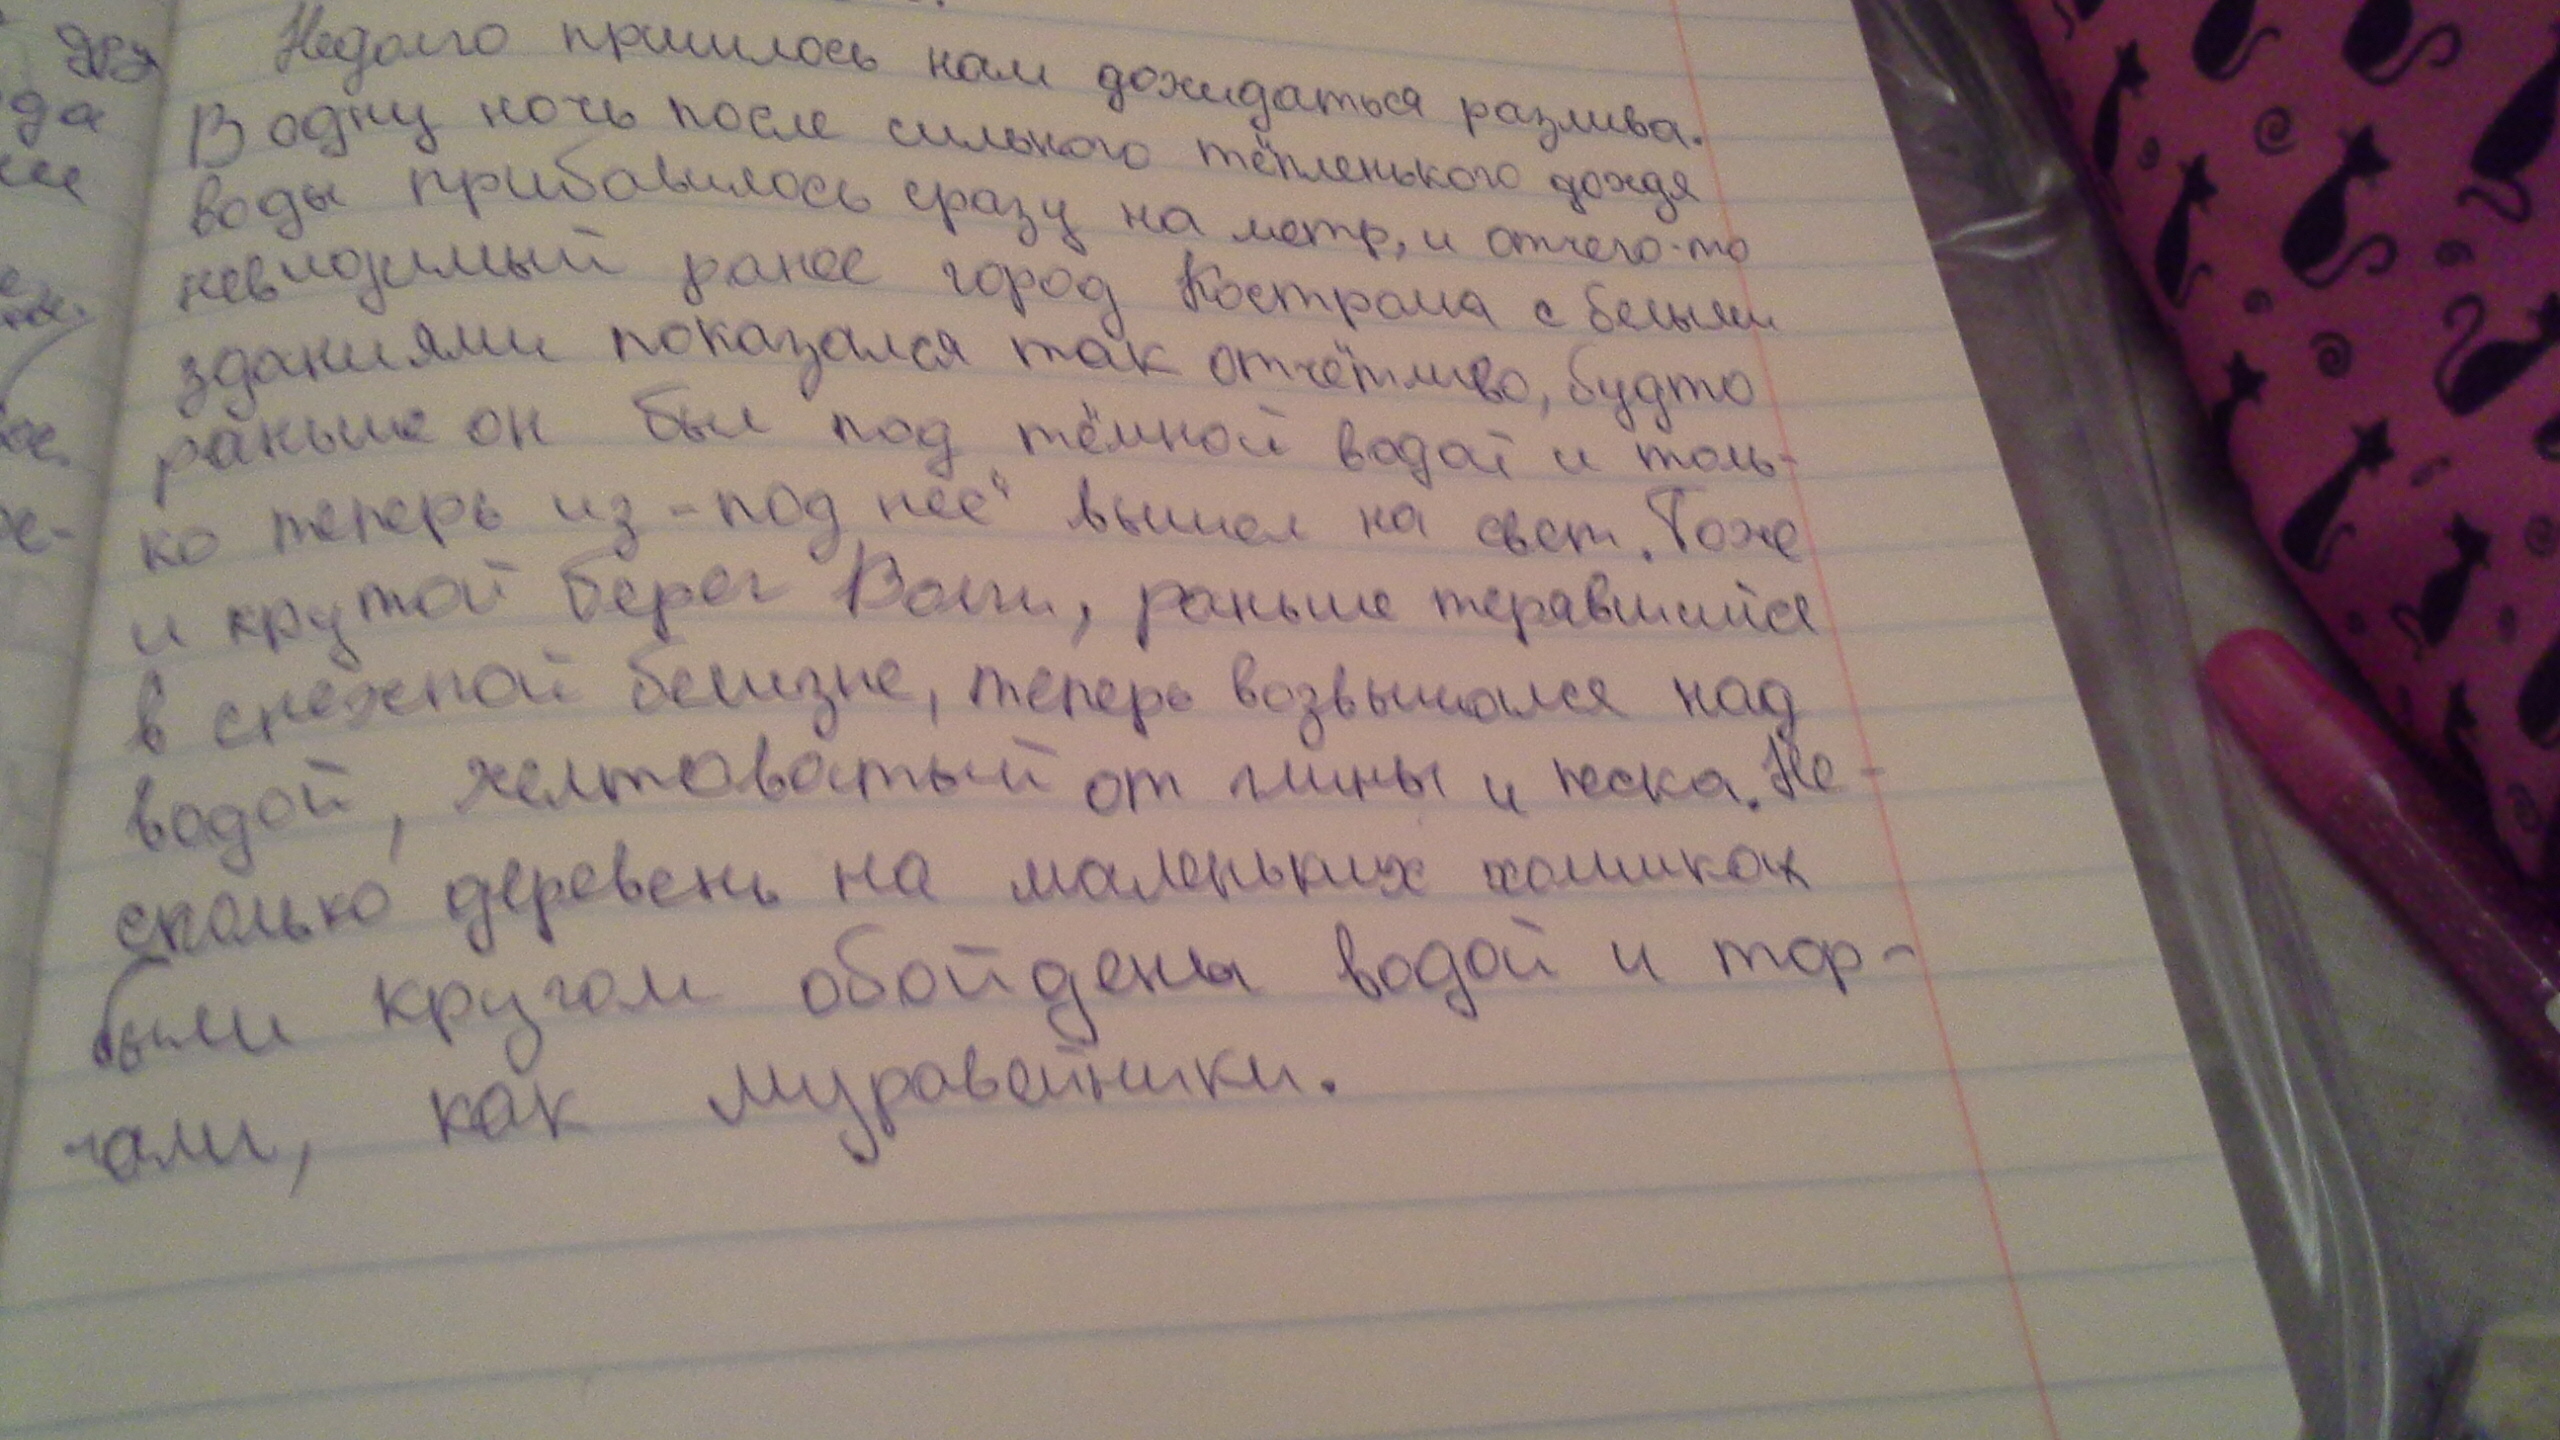 Недолго пришлось нам дожидаться разлива.
В одну ночь после сильного тёпленького дождя
воды прибавилось сразу на метр, и отчего-то
невидимый ранее город Кострома с белыми
зданиями показался так отчётливо, будто
раньше он был под тёмной водой и толь-
ко теперь из-под неё вышел на свет. Тоже
и крутой берег Волги, раньше терявшийся
в снежной белизне, теперь возвышался над
водой, желтоватый от глины и песка. Не-
сколько деревень на маленьких холмиках
были кругом обойдены водой и тор-
чали, как муравейники.